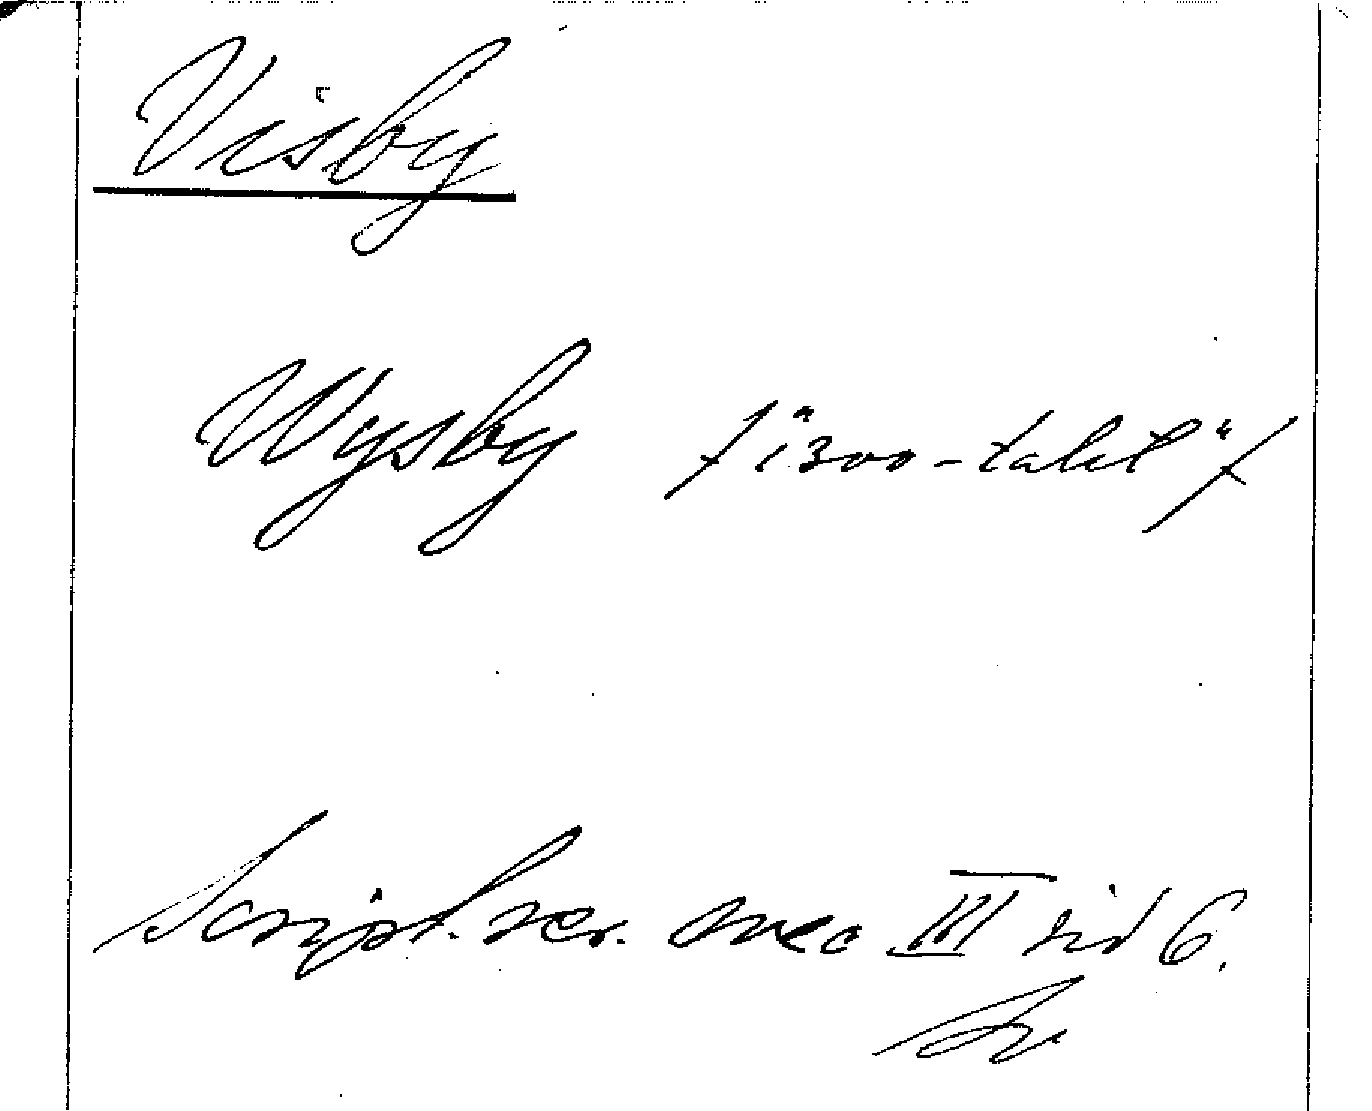 Visby
Wysby /"1300-talet"/
Script. rer. svec III sid 6.